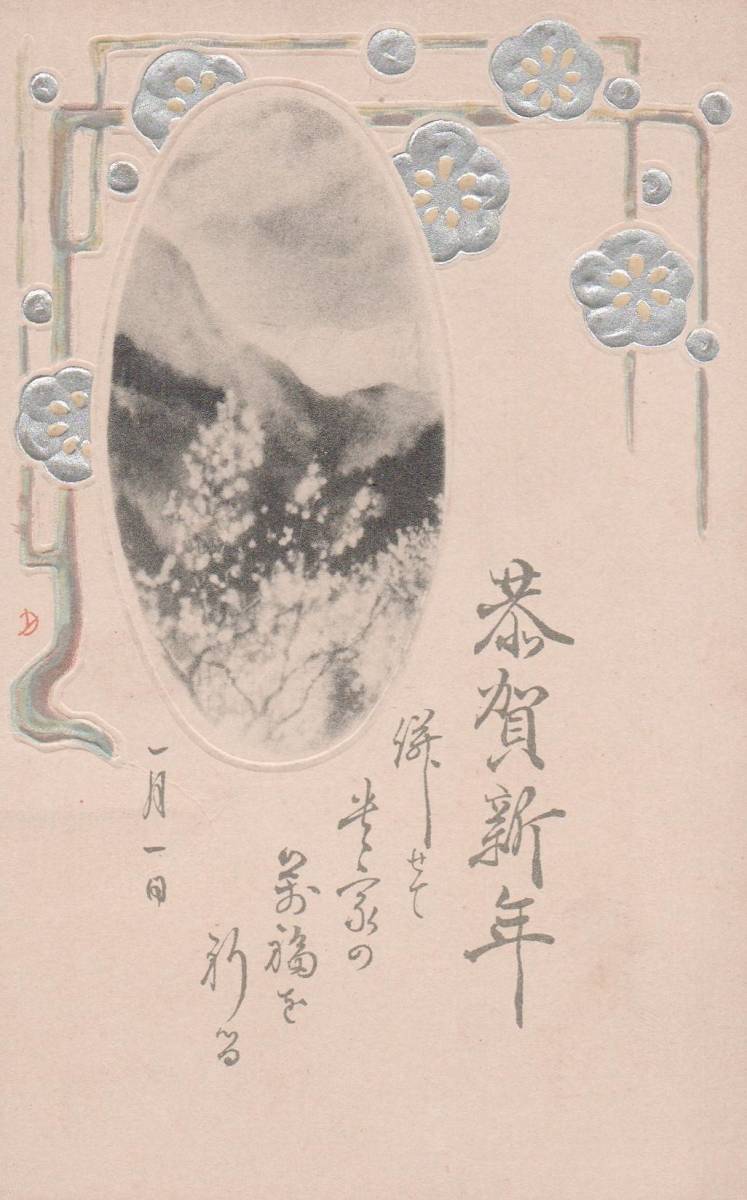 恭賀新年
併せて
貴家の
萬福を
祈る
一月一日